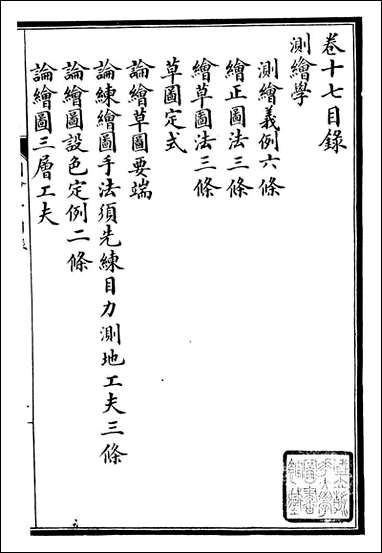 卷十七目錄
測繪學
測繪義例六條
繪正圖法三條
繪草圖法三條
草圖定式
論繪草圖要端
論練繪圖手法須先練目力測地工夫三條
論繪圖設色定例二條
論繪圖三層工夫